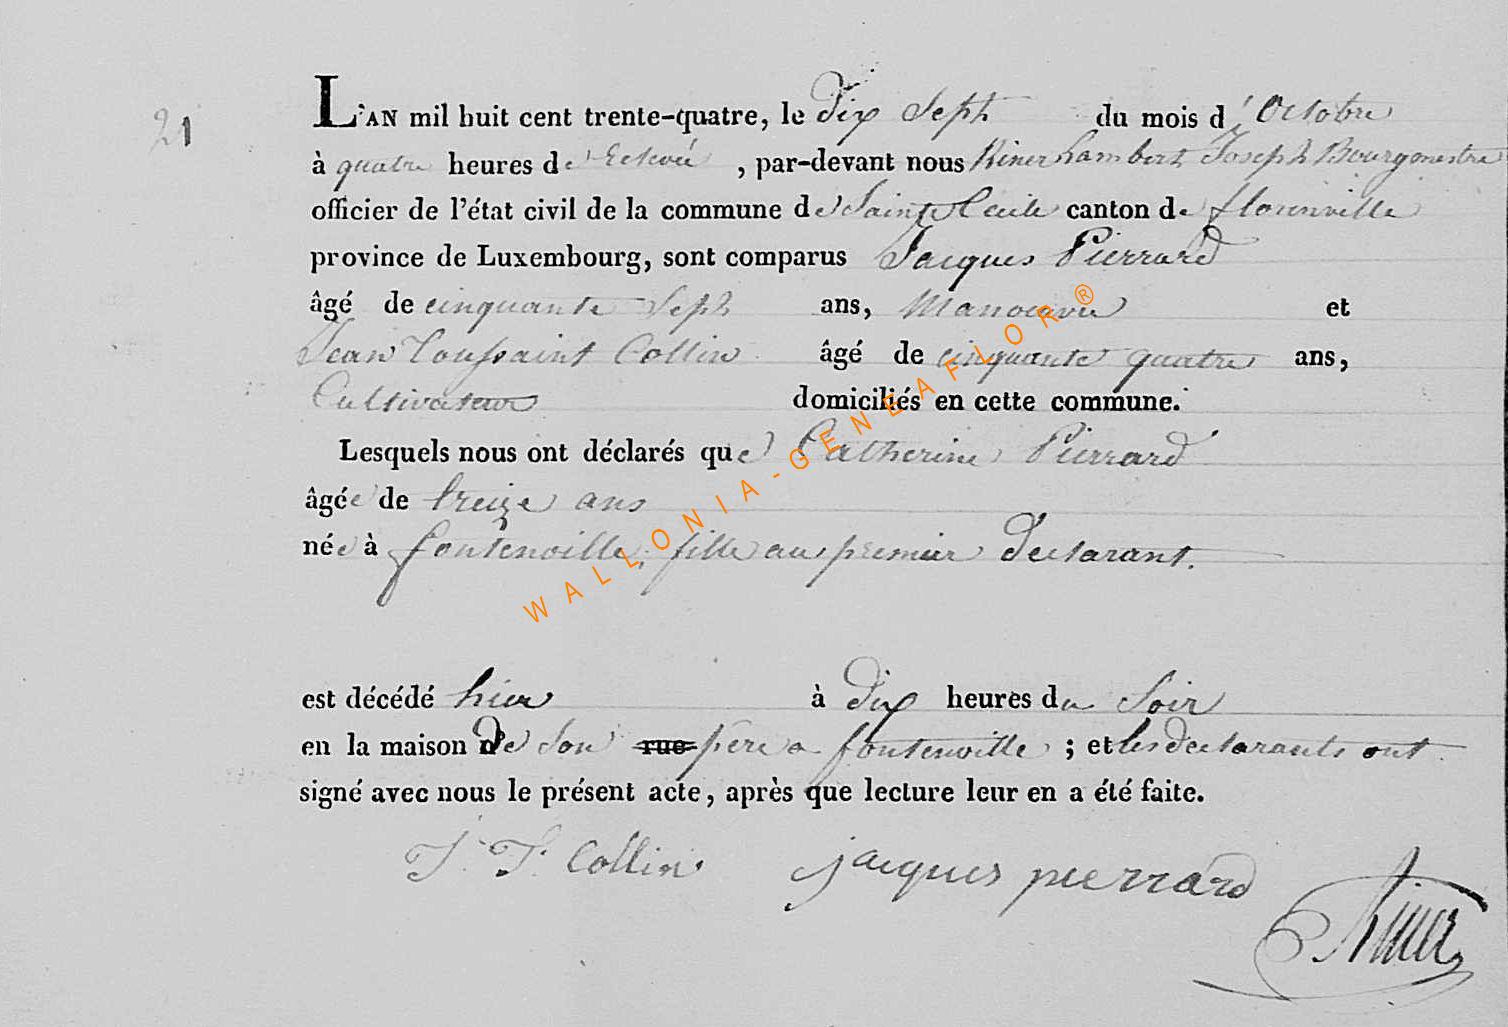 21
L'AN mil huit cent trente-quatre, le dix sept du mois d'Octobre
à quatre heures de relevée, par-devant nous Riner Lambert Joseph Bourgmestre
officier de l'état civil de la commune de Sainte Cecile canton de florenville
province de Luxembourg, sont comparus Jacques Pierrard
âgé de cinquante sept ans, Manoeuvre et
Jean Toussaint Collin âgé de cinquante quatre ans,
Cultivateur domiciliés en cette commune.
Lesquels nous ont déclarés que Catherine Pierrard
âgée de treize ans
née à fontenoille, fille au premier declarant.
est décédé hier à dix heures du Soir
en la maison de son rue père a fontenoille ; et les declarants ont
signé avec nous le présent acte, après que lecture leur en a été faite.
J. T. Collin jacques pierrard
Riner
WALLONIA-GENEAFLOR®